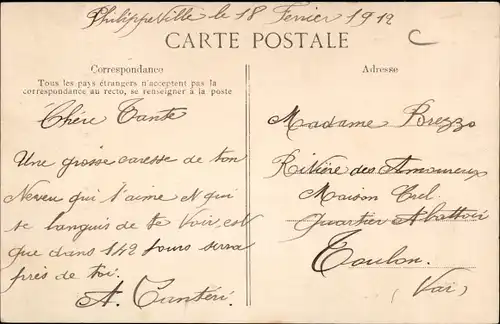 Philippeville le 18 Fevrier 1912
CARTE POSTALE
C
Correspondance
Tous les pays étrangers n'acceptent pas la
correspondance au recto, se renseigner à la poste
Chère Tante
Une grosse caresse de ton
Neveu qui t'aime et qui
se languis de te voir, est
que dans 142 jours serra
près de toi.
A. Cantéri
Adresse
Madame Porezzo
Rivière des Amoureux
Maison
Quartier Abattoir
Toulon.
(Var)